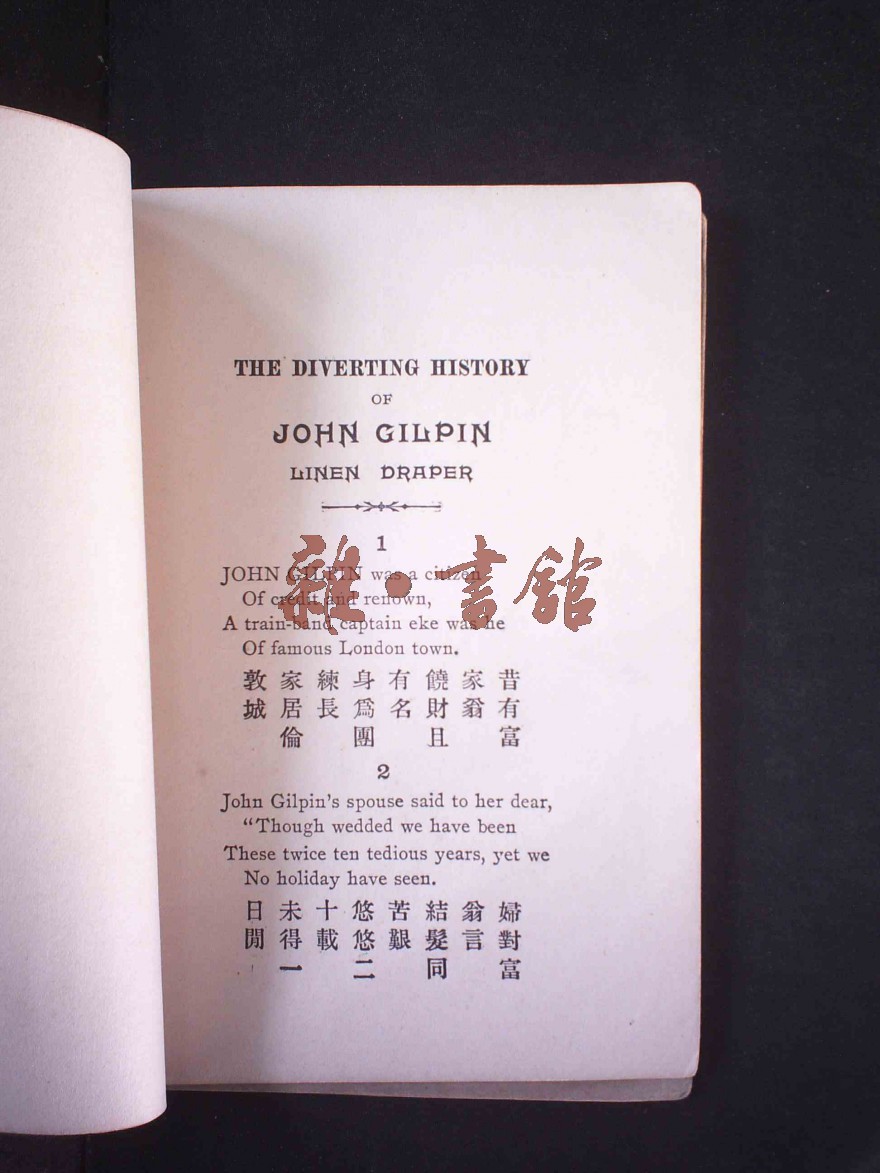 THE DIVERTING HISTORY
OF
JOHN GILPIN
LINEN DRAPER
1
JOHN GILPIN was a citizen
Of credit and renown,
A train-band captain eke was he
Of famous London town.
昔有富
家翁
饒財且
有名
身爲團
練長
家居倫
敦城
2
John Gilpin's spouse said to her dear,
"Though wedded we have been
These twice ten tedious years, yet we
No holiday have seen.
婦對富
翁言
結髮同
苦艱
悠悠二
十載
未得一
日閒
雜·書館